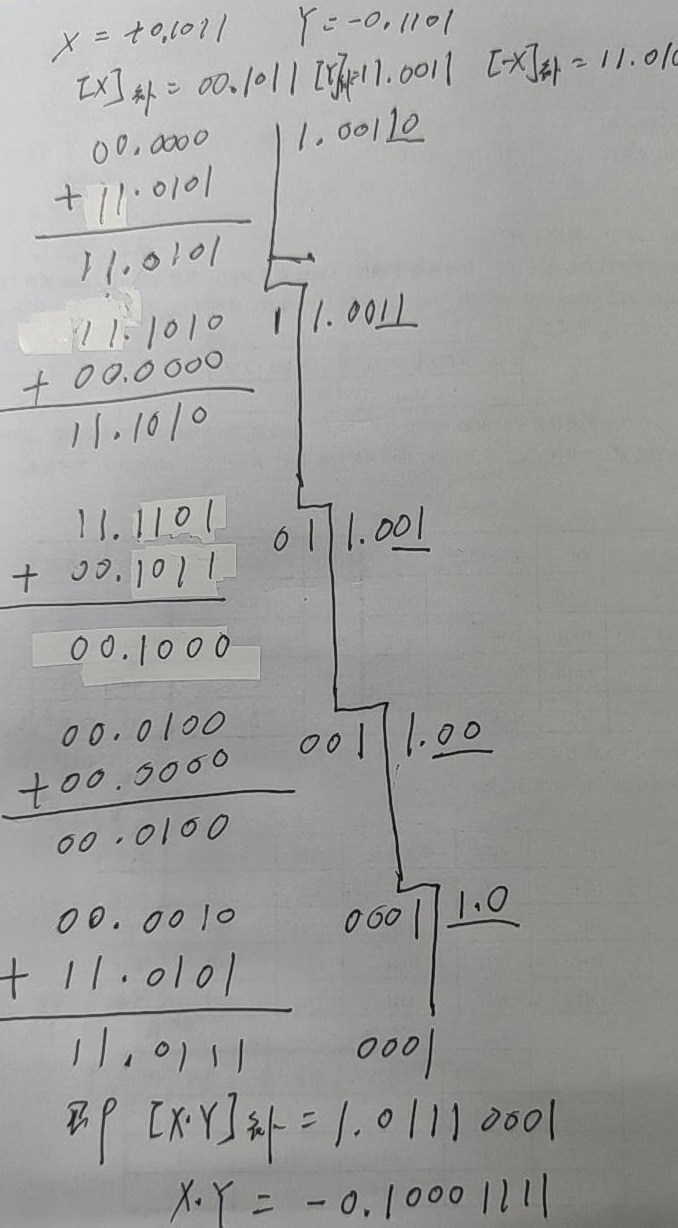 X = +0.1011 Y = -0.1101
[X]补 = 00.1011 [Y]补=11.0011 [-X]补 = 11.010
00.0000 1.00110
+ 11.0101
11.0101
11.1010 1 1.0011
+ 00.0000
11.1010
11.1101 01 1.001
+ 00.1011
00.1000
00.0100 001 1.00
+00.0000
00.0100
00.0010 0001 1.0
+ 11.0101
11.0111 0001
即 [X·Y]补 = 1.01110001
X·Y = -0.10001111